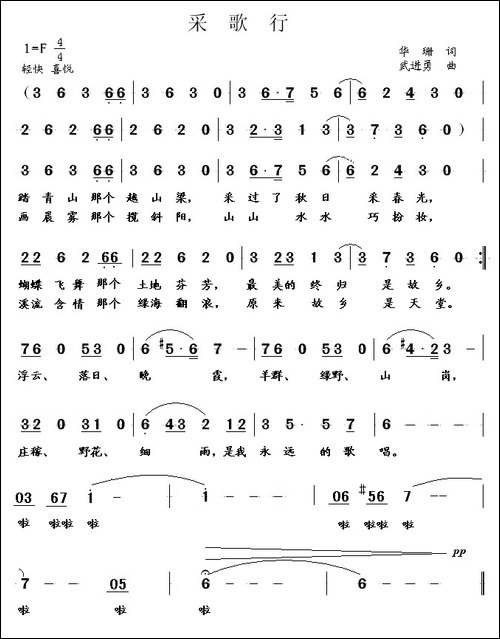 采歌行
1=F 4/4
华珊 词
轻快 喜悦
武进勇 曲
(3 6 3 66 | 3 6 3 0 | 36·7 5 6 | 6 2 4 3 0 |
2 6 2 66 | 2 6 2 0 | 32·3 1 3 | 3 7 3 6 0)
3 6 3 66 | 3 6 3 0 | 36·7 5 6 | 6 2 4 3 0 |
踏青山那个越山梁，采过了秋日采春光，
画晨雾那个搅斜阳，山山水水巧扮妆，
22 6 2 66 | 22 6 2 0 | 3 23 1 3 | 3 7 6 6 0 :|
蝴蝶飞舞那个土地芬芳，最美的终归是故乡。
溪流含情那个绿海翻浪，原来故乡是天堂。
76 0 53 0 | 6 #5·6 7 - | 76 0 53 0 | 6 #4·23 - |
浮云、落日、晚霞，羊群、绿野、山岗，
32 0 31 0 | 6 43 2 12 | 3 5·5 7 | 6 - - - |
庄稼、野花、细雨，是我永远的歌唱。
03 67 i - | i - - - | 06 #56 7 - |
啦 啦啦 啦 啦 啦啦 啦
pp
7 - - 05 | 6 - - - | 6 - - - |
啦 啦 啦